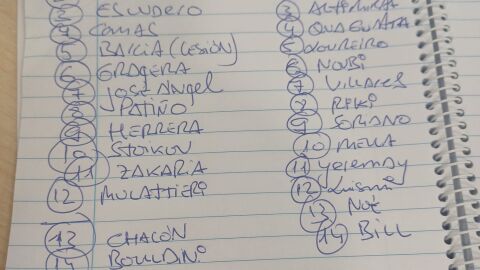 3 ESCUDERO
4 COMAS
5 BARCIA (CESIÓN)
6 GRAGERA
7 JOSÉ ANGEL
8 PATIÑO
9 HERRERA
10 STOIKOV
11 ZAKARIA
12 MULATTIERI
13 CHACÓN
14 BOULDINI
3 ALTAMIRA
4 QUAGLIATA
5 LOUREIRO
6 NOUBI
7 VILLARES
8 REKI
9 SORIANO
10 MELLA
11 Yeremay
12 Luismi
13 NOÉ
14 BILL